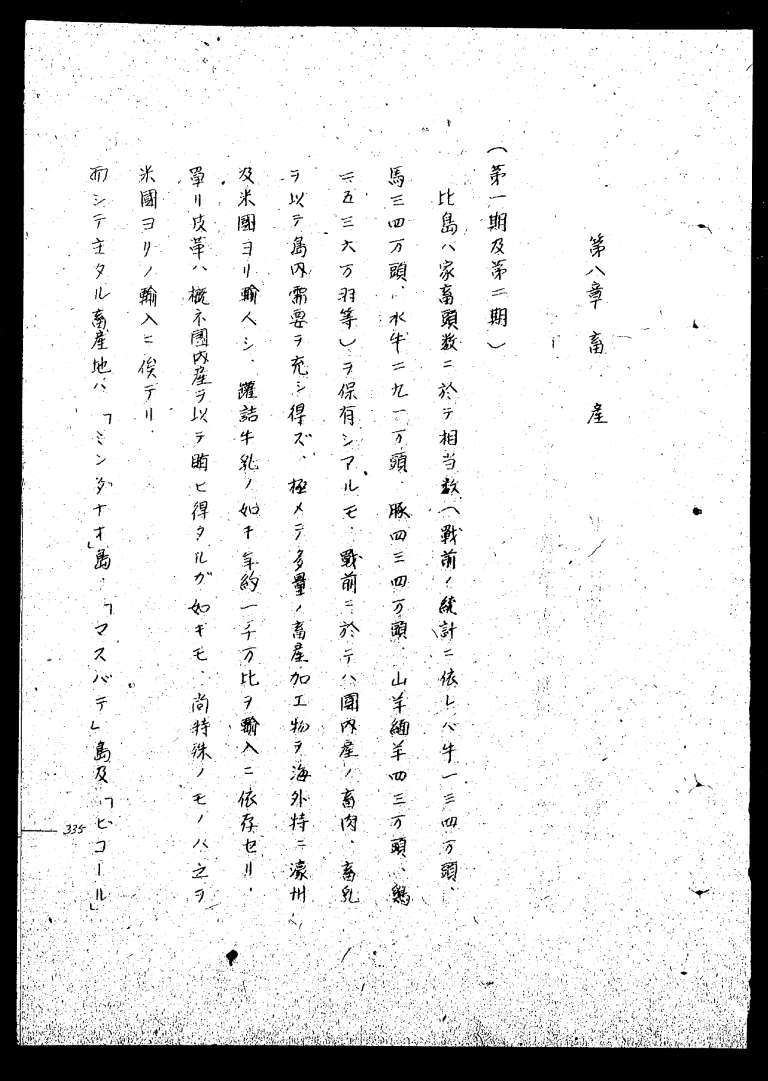 第八章 畜産
(第一期及第二期)
比島ハ家畜頭数ニ於テ相当数(戦前ノ統計ニ依レバ牛一三四万頭、
馬三四万頭、水牛二九一万頭、豚四三四万頭、山羊緬羊四三万頭、鶏
二五三六万羽等)ヲ保有シアルモ、戰前ニ於テハ國内産ノ畜肉、畜乳
ヲ以テ島内需要ヲ充シ得ズ、極メテ多量ノ畜産加工物ヲ海外特ニ濠州
及米國ヨリ輸入シ、罐詰牛乳ノ如キ年約一千万比ヲ輸入ニ依存セリ、
單リ皮革ハ概ネ國内産ヲ以テ賄ヒ得タルガ如キモ、尚特殊ノモノハ之ヲ
米國ヨリノ輸入ニ俟テリ
而シテ主タル畜産地ハ、「ミンダナオ」島、「マスバテ」島及「ビコール」
335